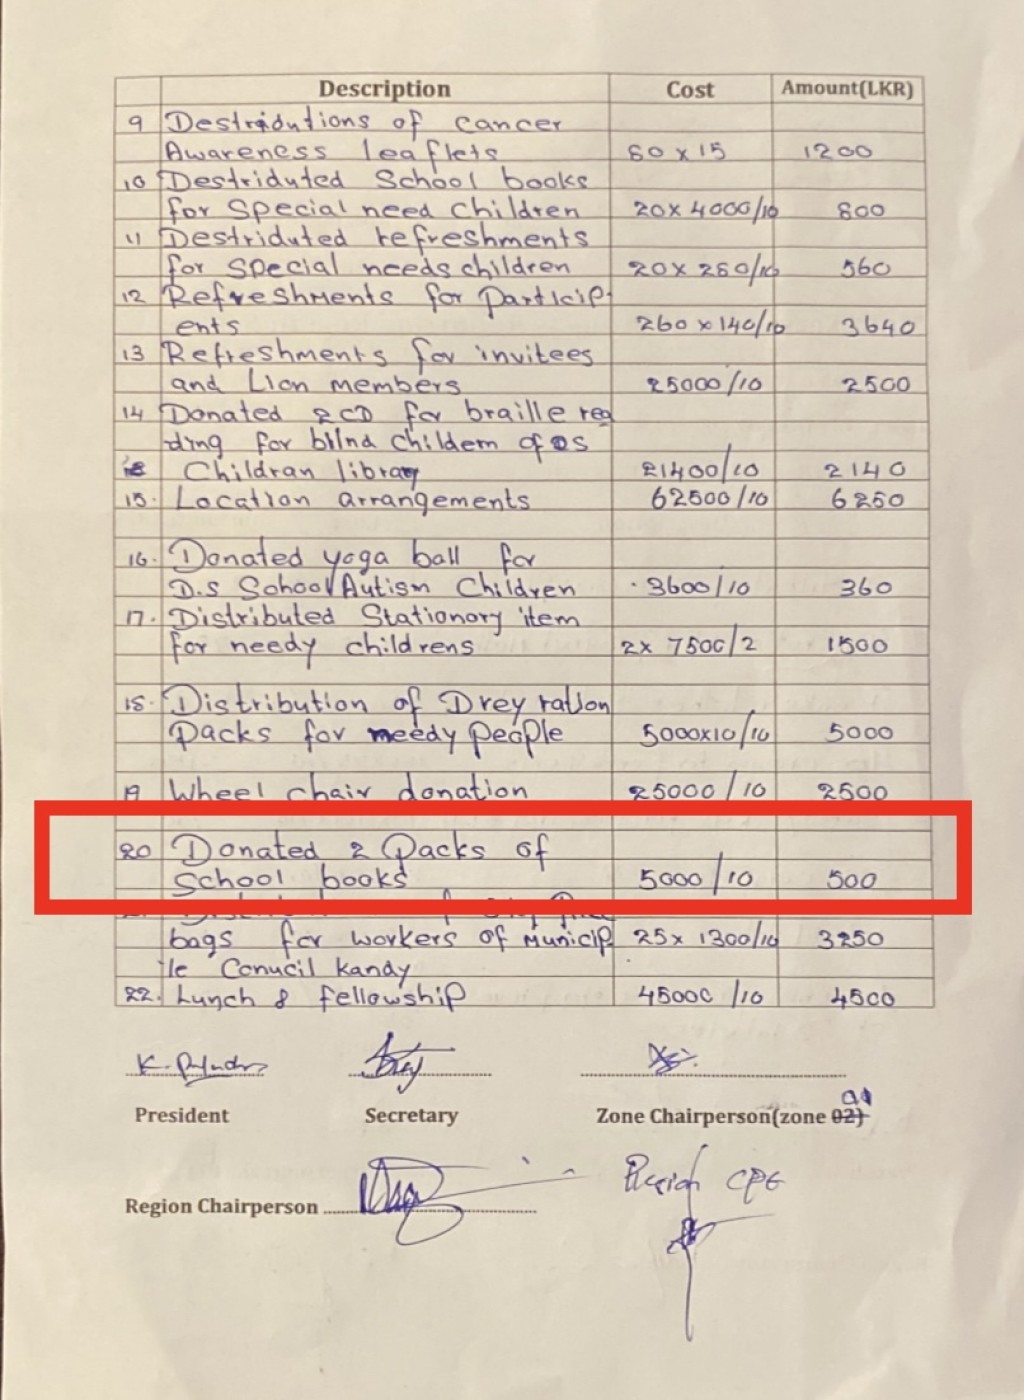 Description Cost Amount(LKR)
9 Destridutions of cancer
Awareness leaflets 80 x 15 1200
10 Destriduted School books
for Special need children 20x 4000/10 800
11 Destriduted refreshments
for special needs children 20x 280/10 560
12 Refreshments for Particip-
ents 260 x 140/10 3640
13 Refreshments for invitees
and Lion members 25000/10 2500
14 Donated 2CD for braille rea
ding for blind childem of DS
Childran library 21400/10 2140
15. Location arrangements 62500/10 6250
16. Donated yoga ball for
D.S School Autism Children 3600/10 360
17. Distributed Stationory item
for needy childrens 2x 7500/2 1500
18. Distribution of Drey ration
Packs for needy people 5000x10/10 5000
19 Wheel chair donation 25000/10 2500
20 Donated 2 Packs of
School books 5000/10 500
bags for workers of Municip 25x 1300/10 3250
le Conucil kandy
22. Lunch & fellowship 45000/10 4500
President Secretary Zone Chairperson(zone 02)
Region CPE
Region Chairperson